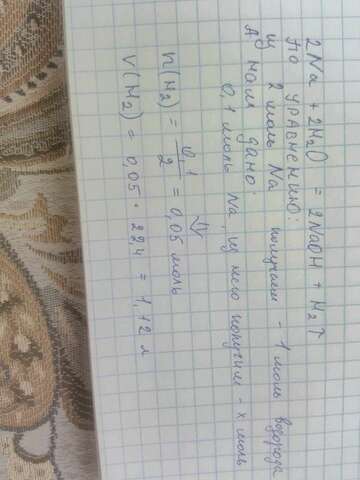 2Na + 2H₂O = 2NaOH + H₂↑
По уравнению:
из 2 моль Na получаем - 1 моль водорода
А нам дано:
0,1 моль Na, из него получим - x моль
⇓
n(H₂) = 0,1/2 = 0,05 моль
V(H₂) = 0,05 · 22,4 = 1,12 л